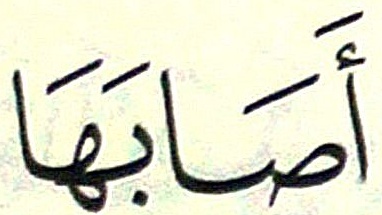 أَصَابَهَا